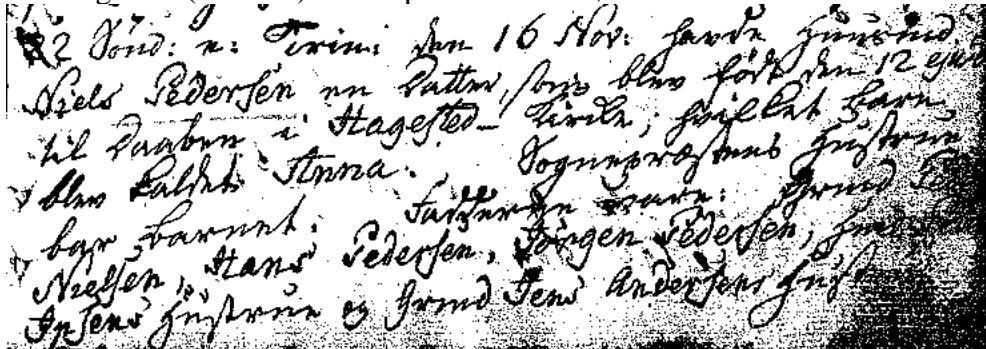 22 Sønd: e: Trin: den 16 Nov: havde Huusmd
Niels Pedersen en Datter, som blev födt den 12 ejusd
til Daaben i Hagested Kirke; hvilket Barn
blev kaldet Anna. Sognepræstens Hustrue
bar Barnet. Fadderne vare: Grmd
Nielsen, Hans Pedersen, Jörgen Pedersen,
Ipsens Hustrue og Grmd Jens Andersens Hust